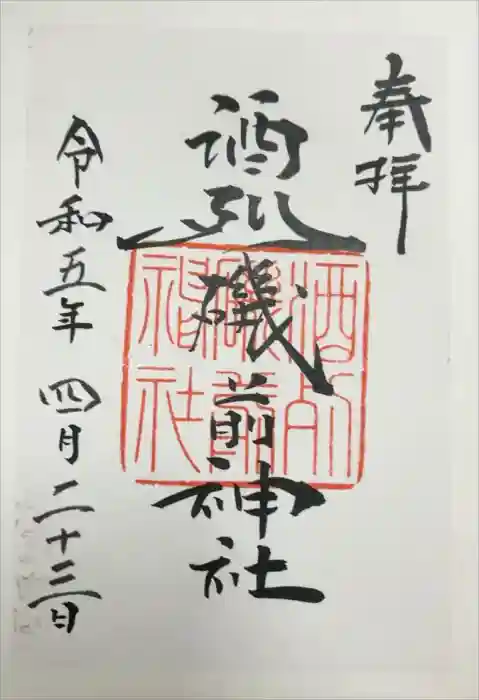 奉拝
酒列磯前神社
酒列
磯前
神社
令和五年 四月二十三日